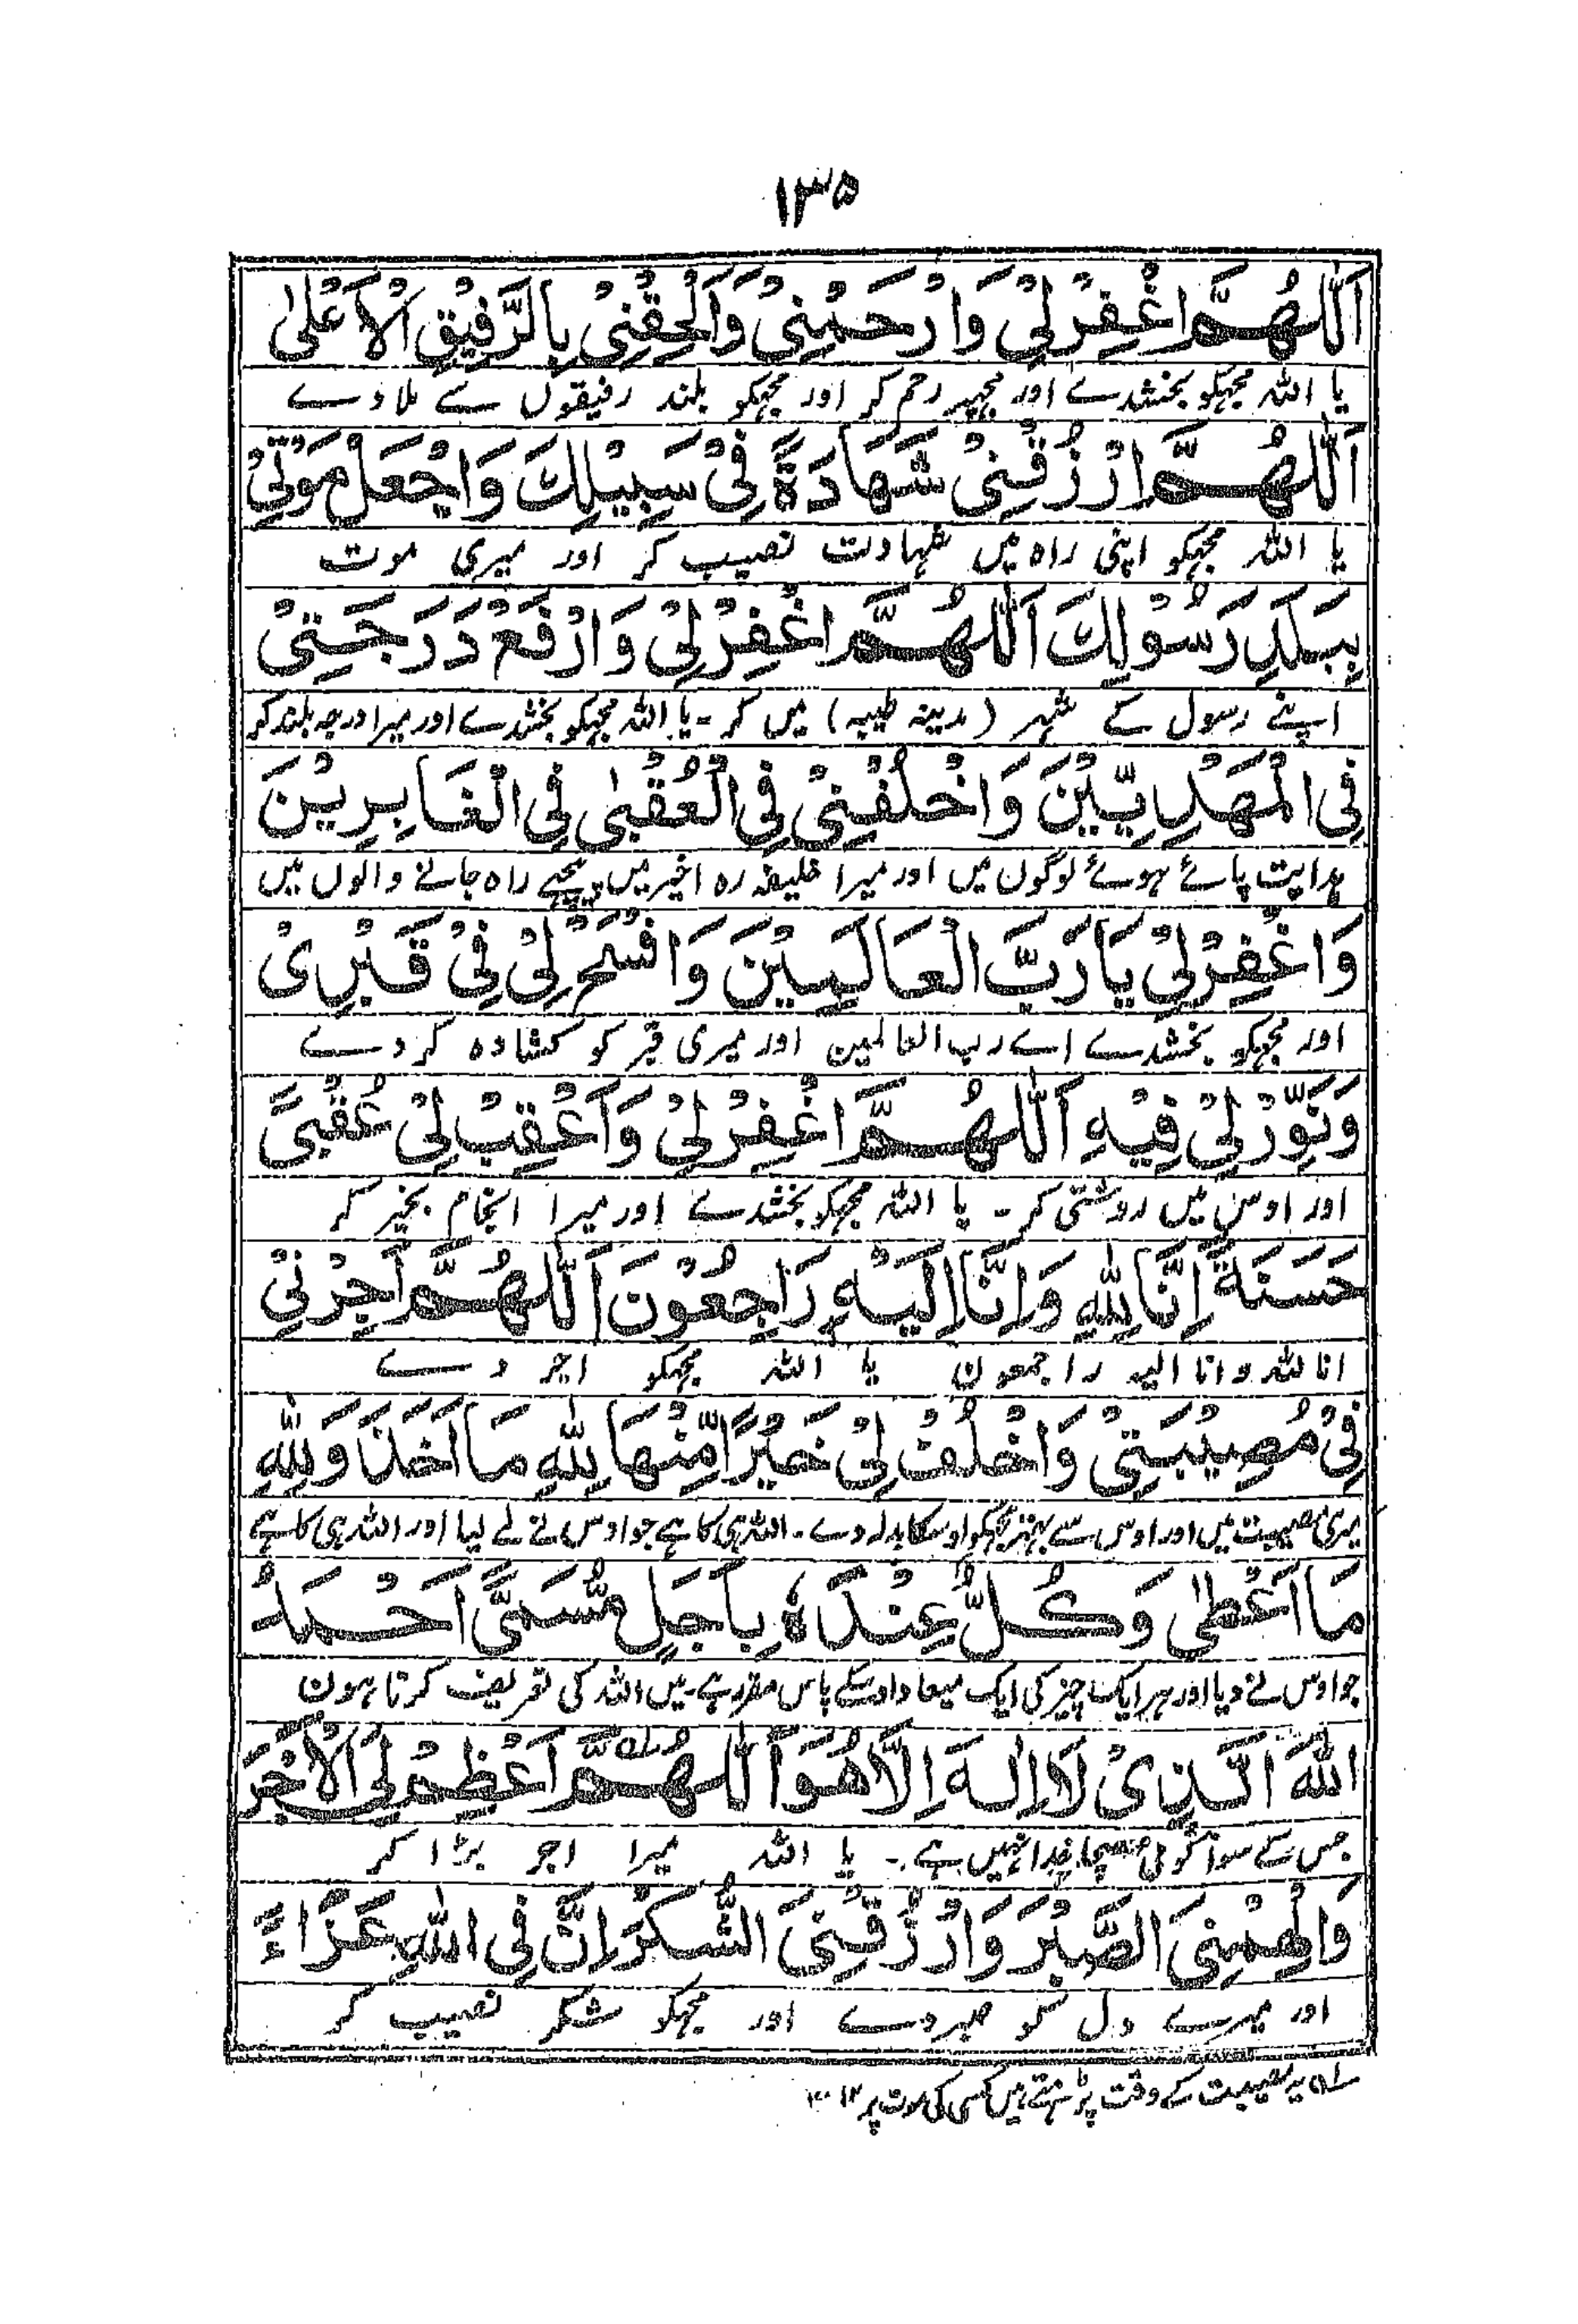 ۱۳۵
اَللّٰهُمَّ اغْفِرْ لِیْ وَارْحَمْنِیْ وَاَلْحِقْنِیْ بِالرَّفِیْقِ الْاَعْلیٰ
یا اللہ مجہکو بخشدے اور مجہپر رحم کر اور مجہکو بلند رفیقوں سے ملادے
اَللّٰهُمَّ ارْزُقْنِیْ شَهَادَةً فِیْ سَبِیْلِكَ وَاجْعَلْ مَوْتِیْ
یا اللہ مجہکو اپنی راہ میں شہادت نصیب کر اور میری موت
بِبَلَدِ رَسُوْلِكَ اَللّٰهُمَّ اغْفِرْ لِیْ وَارْفَعْ دَرَجَتِیْ
اپنے رسول کے شہر (مدینہ طیبہ) میں کر ۔ یا اللہ مجہکو بخشدے اور میرا درجہ بلند کر
فِی الْمَهْدِیِّیْنَ وَاخْلُفْنِیْ فِی الْعُقْبٰی فِی الْغَابِرِیْنَ
ہدایت پائے ہوئے لوگون میں اور میرا خلیفہ رہ اخیر میں پیچہے راہ جانے والوں میں
وَاغْفِرْ لِیْ یَا رَبَّ الْعَالَمِیْنَ وَافْسَحْ لِیْ فِیْ قَبْرِیْ
اور مجہکو بخشدے اے رب العالمین اور میری قبر کو کشادہ کر دے
وَنَوِّرْ لِیْ فِیْهِ اَللّٰهُمَّ اغْفِرْ لِیْ وَاَعْقِبْ لِیْ عُقْبیً
اور اوس میں روشنی کر ۔ یا اللہ مجہکو بخشدے اور میرا انجام بخیر کر
حَسَنَةً اِنَّا لِلّٰهِ وَاِنَّا اِلَیْهِ رَاجِعُوْنَ اَللّٰهُمَّ اَجِرْنِیْ
انا للہ وانا الیہ راجعون یا اللہ مجہکو اجر دے
فِیْ مُصِیْبَتِیْ وَاخْلُفْ لِیْ خَیْرًا مِّنْهَا لِلّٰهِ مَا اَخَذَ وَلِلّٰهِ
میری مصیبت میں اور اوس سے بہتر مجہکو اوسکا بدلہ دے ۔ اللہ ہی کا ہے جو اوس نے لے لیا اور اللہ ہی کا ہے
مَا اَعْطٰی وَكُلٌّ عِنْدَهٗ بِاَجَلٍ مُّسَمًّی اَحْمَدُ
جو اوس نے دیا اور ہر ایک چیز کی ایک میعاد اوسکے پاس مقرر ہے ۔ میں اللہ کی تعریف کرتا ہون
اللّٰهَ الَّذِیْ لَا اِلٰهَ اِلَّا هُوَ اَللّٰهُمَّ اَعْظِمْ لِیَ الْاَجْرَ
جس کے سوا کوئی سچا خدا نہیں ہے ۔ یا اللہ میرا اجر بڑا کر
وَاَلْهِمْنِیَ الصَّبْرَ وَارْزُقْنِیَ الشُّكْرَ اِنَّ فِی اللّٰهِ عَزَاءً
اور میرے دل کو صبر دے اور مجہکو شکر نصیب کر
لہ یہ مصیبت کے وقت پڑہتے ہیں کسی کی موت پر ۱۲